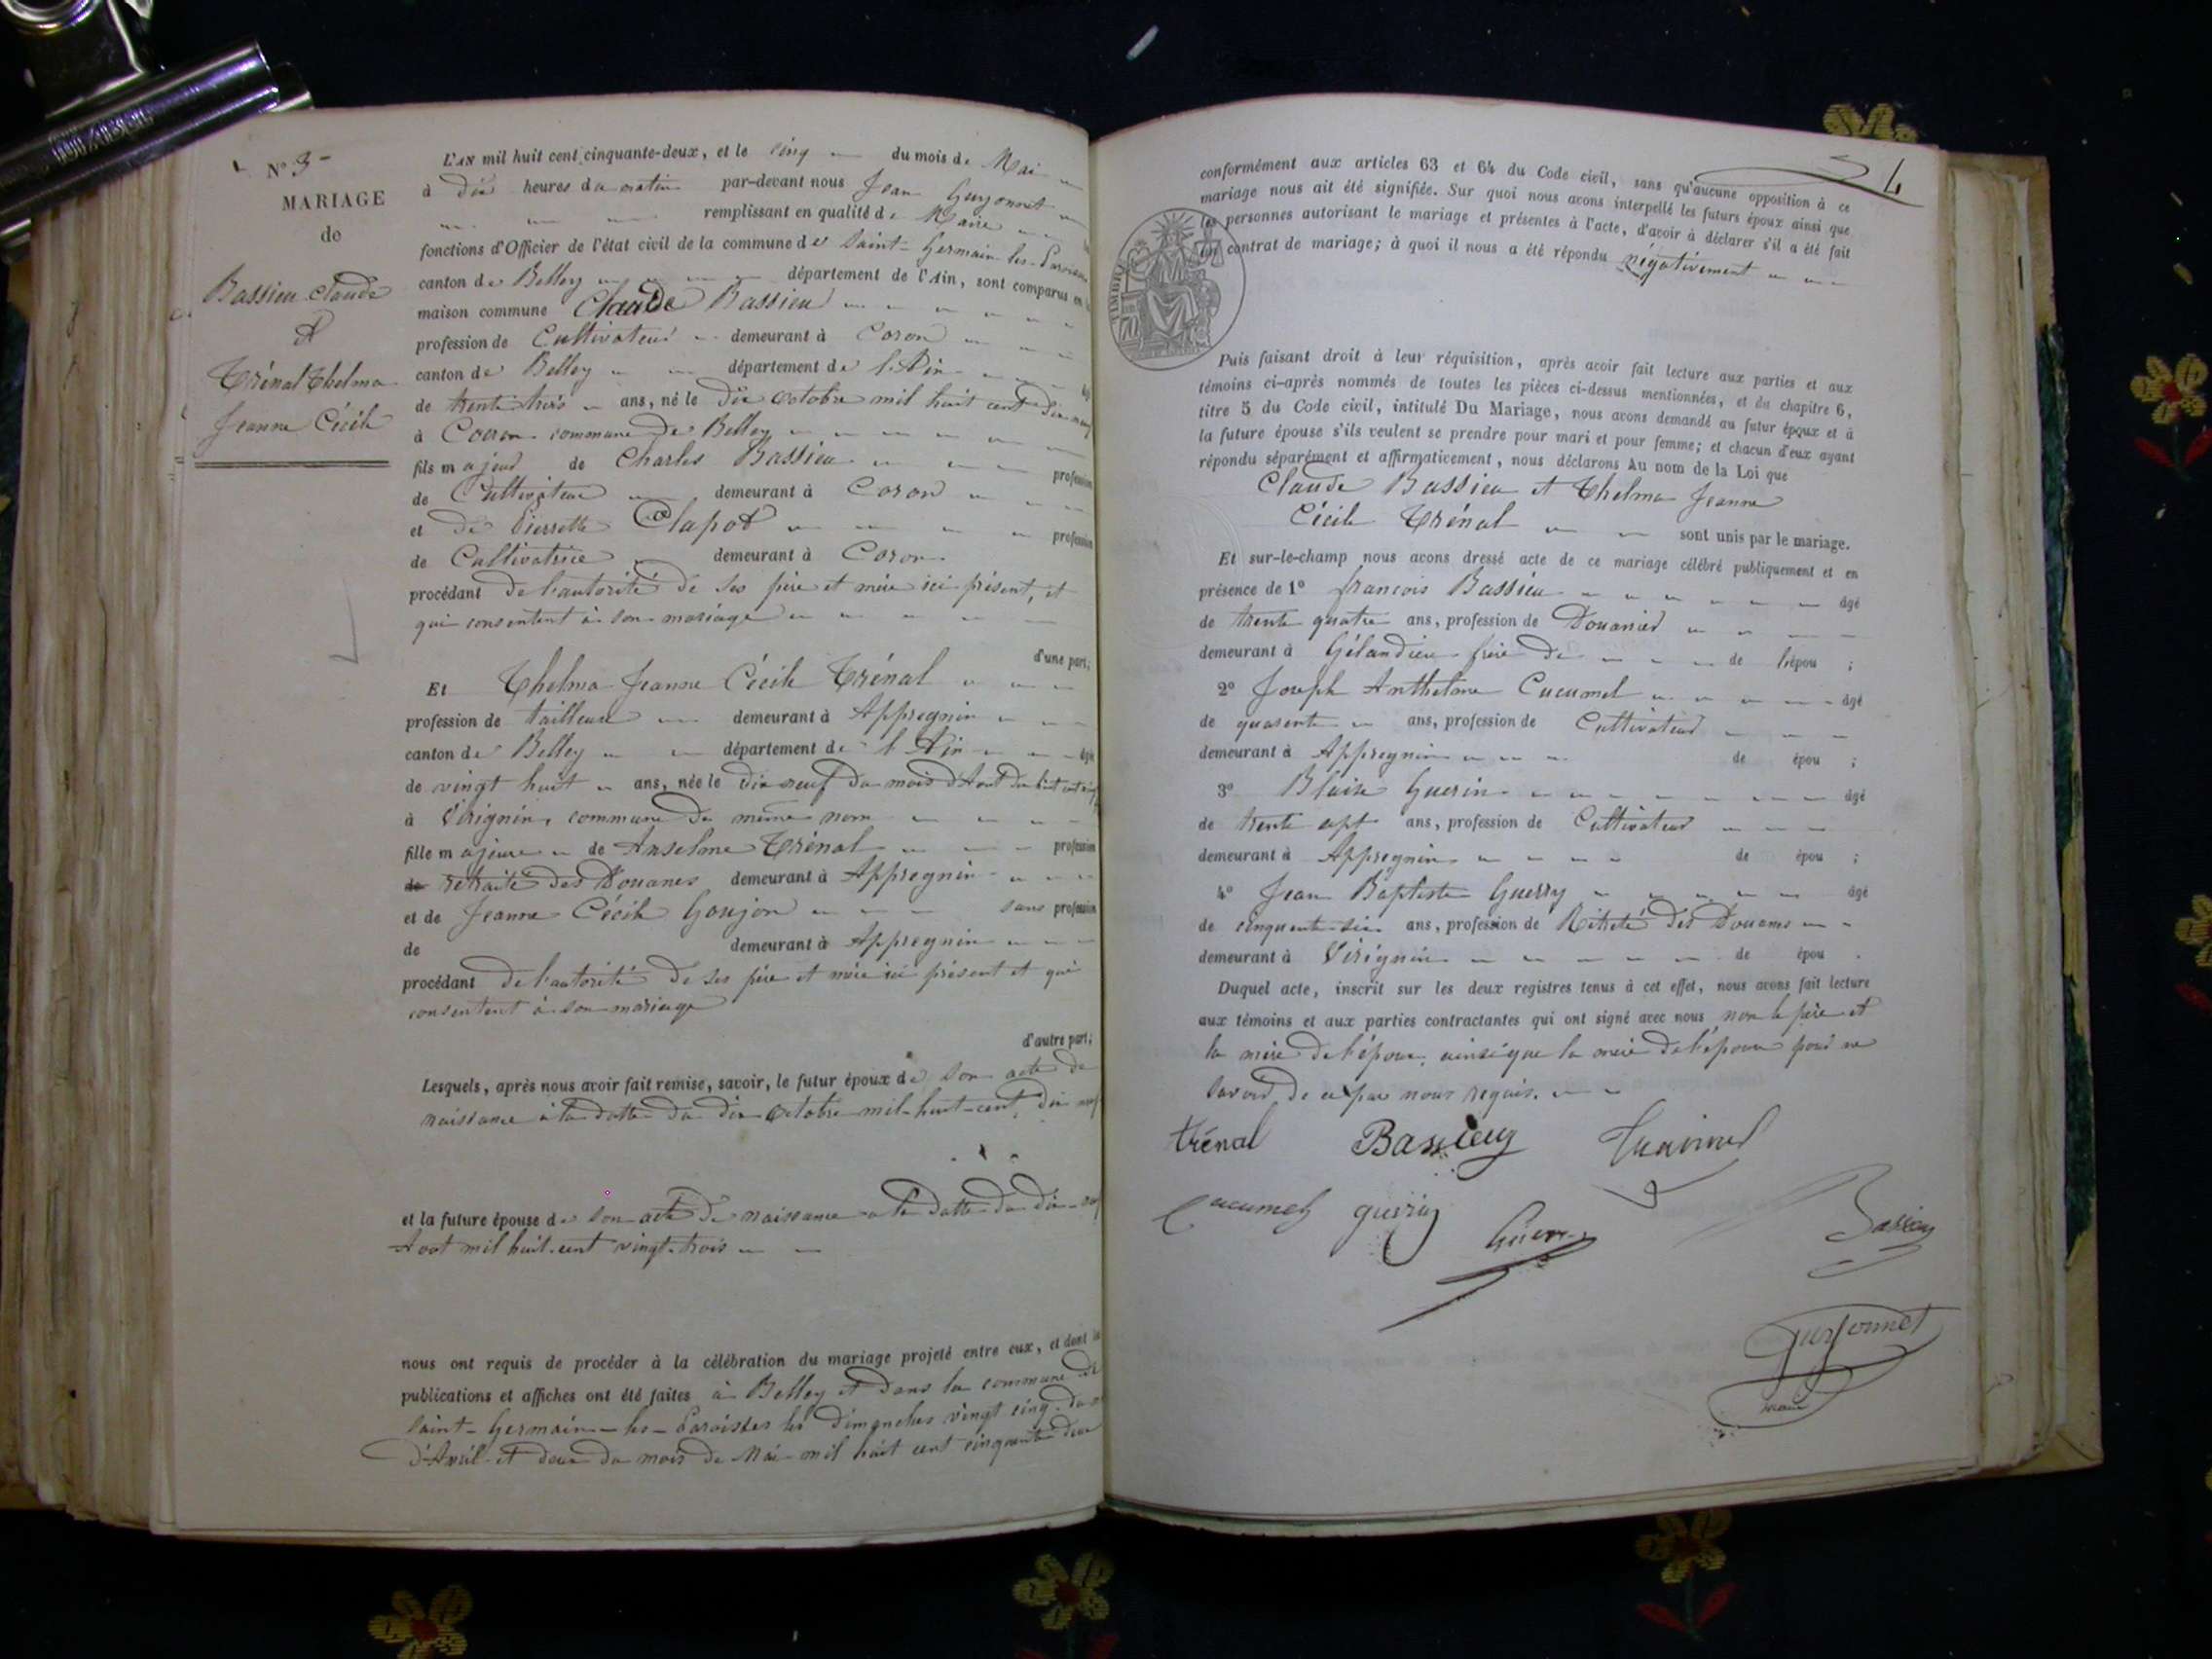 N° 3
MARIAGE
de
Bassieu Claude
Et
Trénal Thelma
Jeanne Cécile
L'AN mil huit cent cinquante-deux, et le cinq du mois de Mai
à dix heures du matin par-devant nous Jean Guyonnet
remplissant en qualité de Maire
fonctions d'Officier de l'état civil de la commune de Saint-Germain-les-Paroisses
canton de Belley département de l'Ain, sont comparus en
maison commune Claude Bassieu
profession de Cultivateur demeurant à Coron
canton de Belley département de l'Ain
de trente trois ans, né le dix octobre mil huit cent dix neuf
à Coron commune de Belley
fils majeur de Charles Bassieu profession
de Cultivateur demeurant à Coron
et de Pierrette Clapot profession
de Cultivatrice demeurant à Coron
procédant de l'autorité de ses père et mère ici présent, et
qui consentent à son mariage
d'une part;
Et Thelma Jeanne Cécile Trénal
profession de tailleuse demeurant à Appregnin
canton de Belley département de l'Ain âgé
de vingt huit ans, née le dix neuf du mois d'Aout
à Virignin, commune du même nom
fille majeure de Anselme Trénal profession
de retraité des Douanes demeurant à Appregnin
et de Jeanne Cécile Goujon sans profession
de demeurant à Appregnin
procédant de l'autorité de ses père et mère ici présent et qui
consentent à son mariage
d'autre part;
Lesquels, après nous avoir fait remise, savoir, le futur époux de son acte de
naissance à la datte du dix octobre mil-huit-cent, dix neuf
et la future épouse de son acte de naissance a la datte du dix-neuf
Aoot mil huit-cent vingt-trois
nous ont requis de procéder à la célébration du mariage projeté entre eux, et dont
publications et affiches ont été faites à Belley et dans la commune de
Saint-Germain-les-Paroisses les dimanches vingt cinq du
d'Avril et deux du mois de Mai mil huit cent cinquante deux
4
conformément aux articles 63 et 64 du Code civil, sans qu'aucune opposition à ce
mariage nous ait été signifiée. Sur quoi nous avons interpellé les futurs époux ainsi que
les personnes autorisant le mariage et présentes à l'acte, d'avoir à déclarer s'il a été fait
un contrat de mariage; à quoi il nous a été répondu négativement
TIMBRE
Puis faisant droit à leur réquisition, après avoir fait lecture aux parties et aux
témoins ci-après nommés de toutes les pièces ci-dessus mentionnées, et du chapitre 6,
titre 5 du Code civil, intitulé Du Mariage, nous avons demandé au futur époux et à
la future épouse s'ils veulent se prendre pour mari et pour femme; et chacun d'eux ayant
répondu séparément et affirmativement, nous déclarons Au nom de la Loi que
Claude Bassieu et Thelma Jeanne
Cécile Trénal sont unis par le mariage.
Et sur-le-champ nous avons dressé acte de ce mariage célébré publiquement et en
présence de 1° francois Bassieu âgé
de trente quatre ans, profession de Douanier
demeurant à Gélandieu frère de de l'épou ;
2° Joseph Anthelme Cucumel âgé
de quarente ans, profession de Cultivateur
demeurant à Appregnin de épou ;
3° Blaise Guerin âgé
de trente sept ans, profession de Cultivateur
demeurant à Appregnin de épou ;
4° Jean Baptiste Guerry âgé
de cinquente-six ans, profession de Retreté des Douanes
demeurant à Virignin de épou .
Duquel acte, inscrit sur les deux registres tenus à cet effet, nous avons fait lecture
aux témoins et aux parties contractantes qui ont signé avec nous, non le père et
la mère de l'époux, ainsi que la mère de l'épouse pour ne
savoir, de ce par nous requis.
trénal Bassieu
Cucumel guerry
Guerin Bassieu
Guyonnet
maire